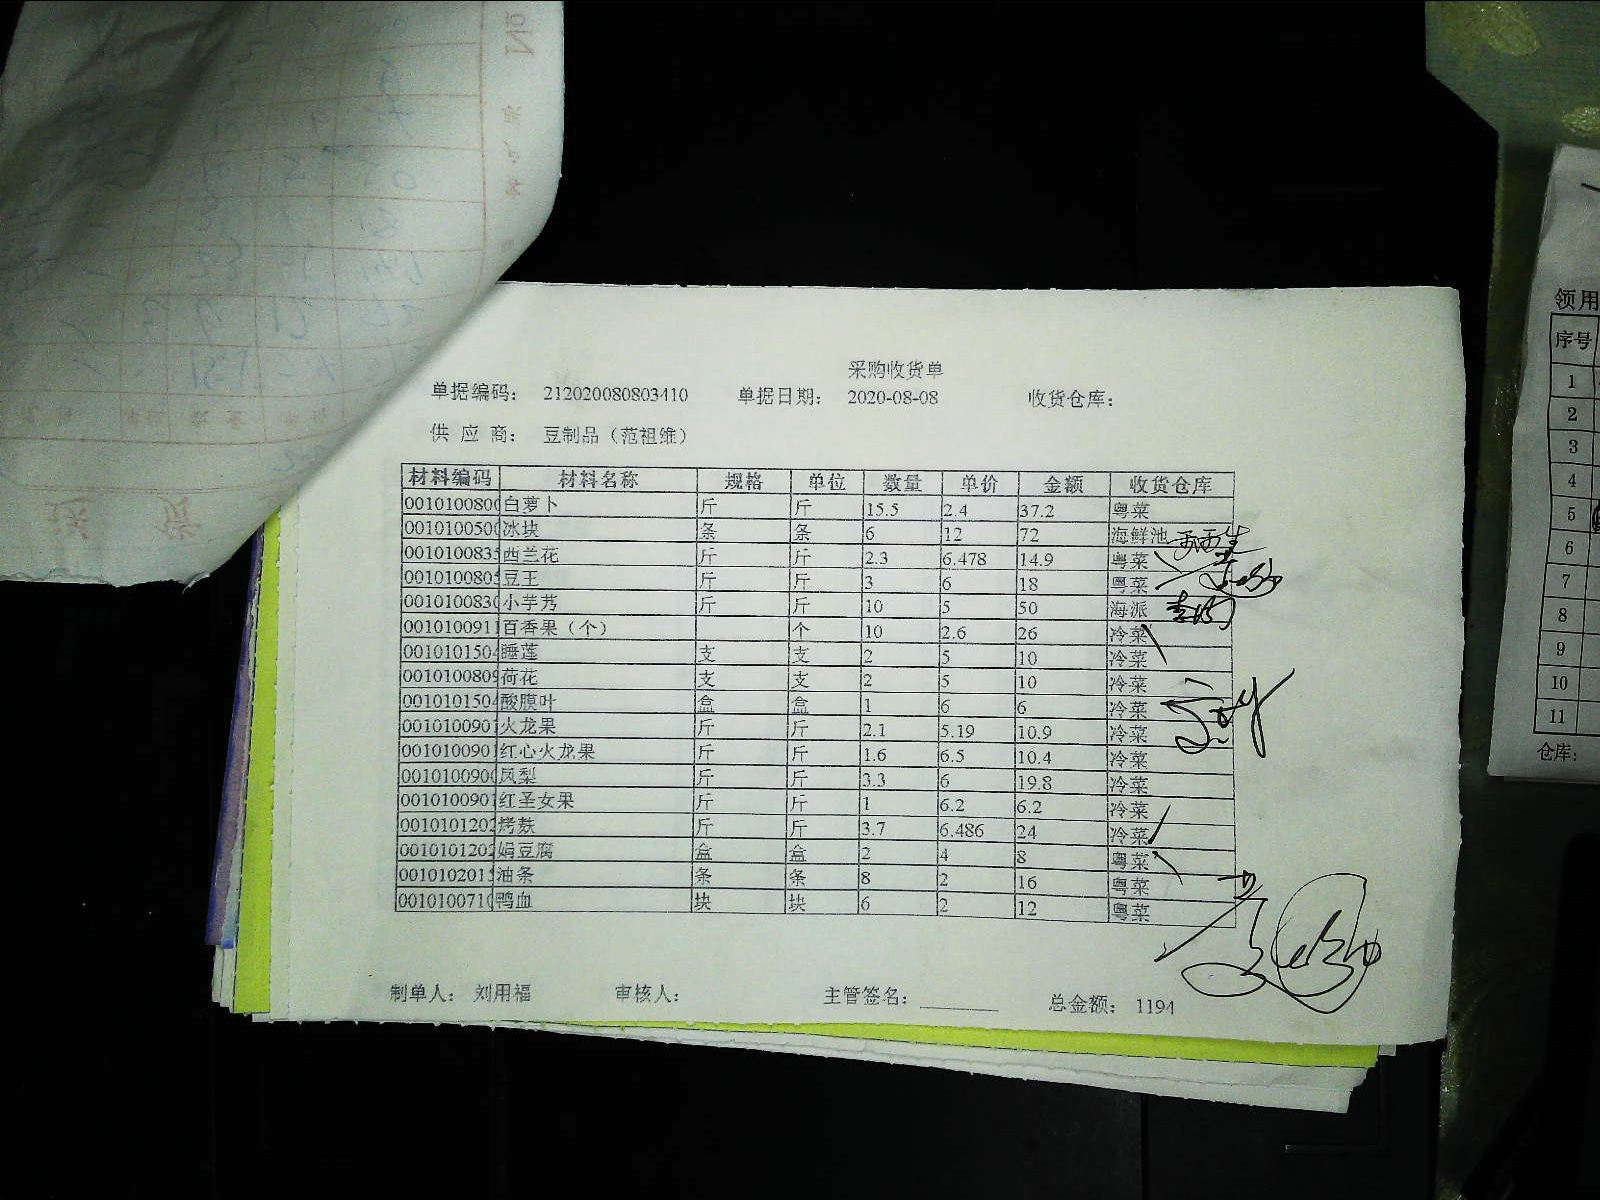 采购收货单
单据编码： 212020080803410 单据日期： 2020-08-08 收货仓库：
供 应 商： 豆制品（范祖维）
材料编码 材料名称 规格 单位 数量 单价 金额 收货仓库
0010100800 白萝卜 斤 斤 15.5 2.4 37.2 粤菜
0010100500 冰块 条 条 6 12 72 海鲜池
001010083 西兰花 斤 斤 2.3 6.478 14.9 粤菜
001010080 豆王 斤 斤 3 6 18 粤菜
001010083 小芋艿 斤 斤 10 5 50 海派
0010100911 百香果（个） 个 10 2.6 26 冷菜
001010150 睡莲 支 支 2 5 10 冷菜
001010080 荷花 支 支 2 5 10 冷菜
001010150 酸膜叶 盒 盒 1 6 6 冷菜
001010090 火龙果 斤 斤 2.1 5.19 10.9 冷菜
001010090 红心火龙果 斤 斤 1.6 6.5 10.4 冷菜
001010090 凤梨 斤 斤 3.3 6 19.8 冷菜
001010090 红圣女果 斤 斤 1 6.2 6.2 冷菜
001010120 烤麸 斤 斤 3.7 6.486 24 冷菜
001010120 娟豆腐 盒 盒 2 4 8 粤菜
001010201 油条 条 条 8 2 16 粤菜
001010071 鸭血 块 块 6 2 12 粤菜
制单人： 刘用福 审核人： 主管签名： 总金额： 1194
领用
序号
1
2
3
4
5
6
7
8
9
10
11
仓库：